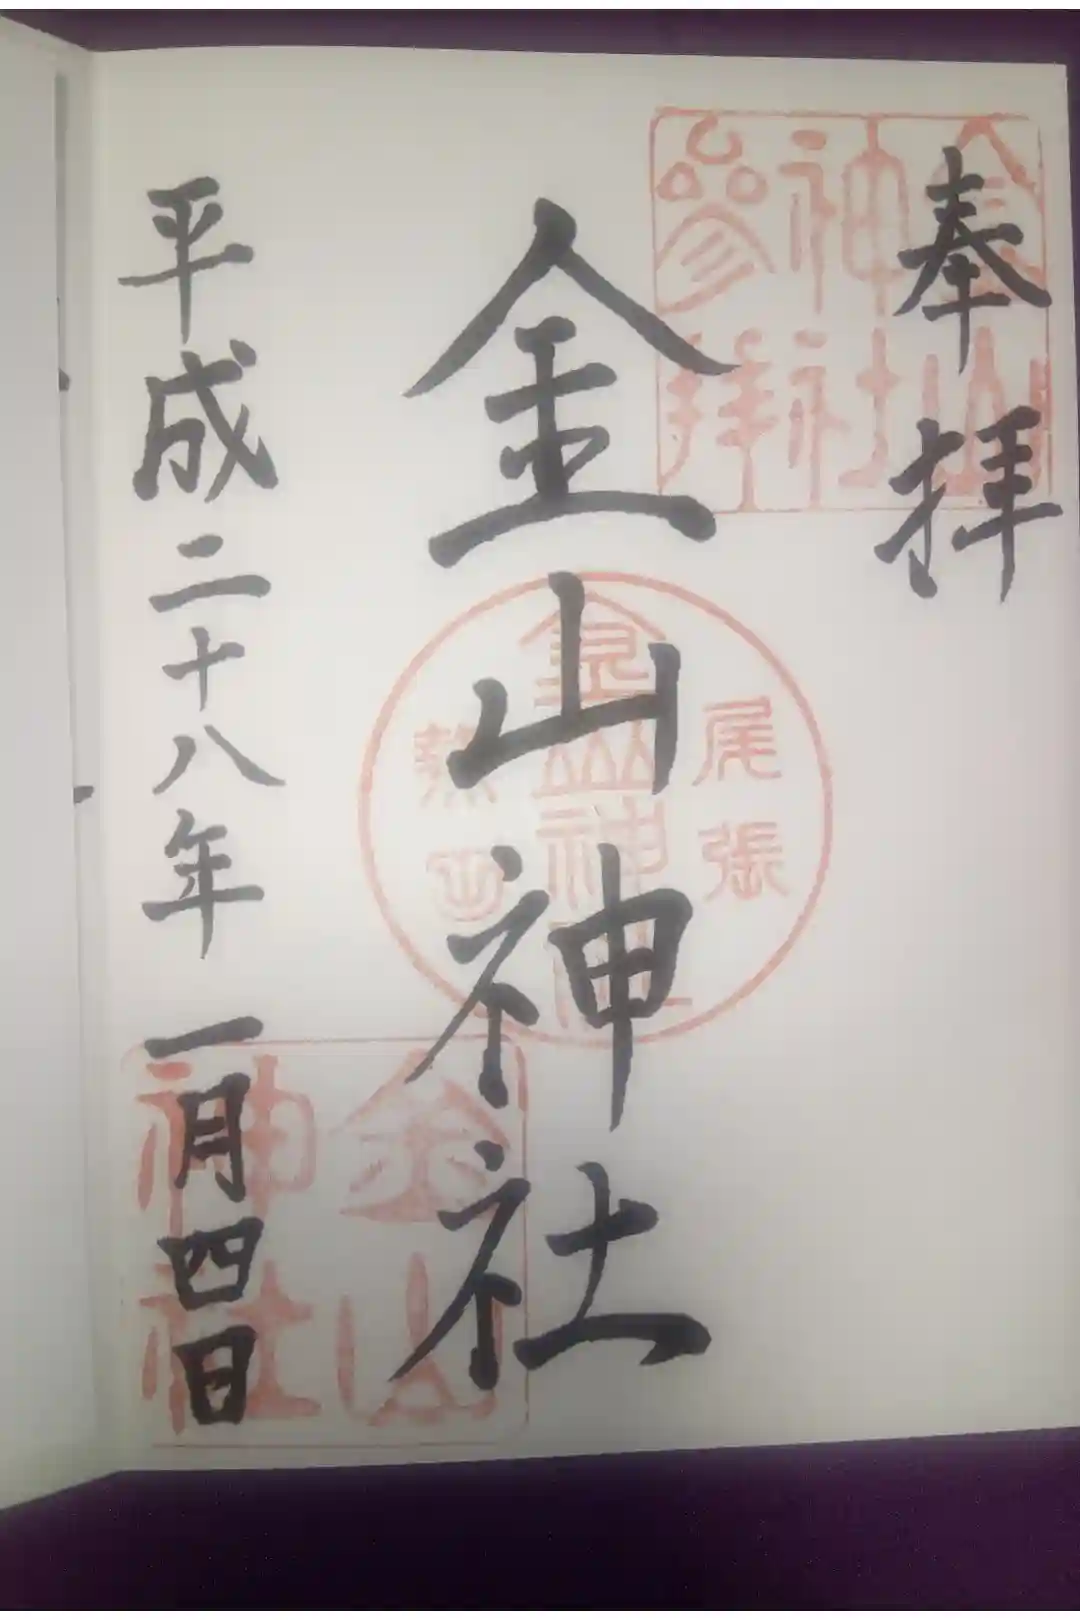 奉拝
金山神社
平成二十八年一月四日
金山
神社
参拝
尾張
金山神社
熱田
金山
神社